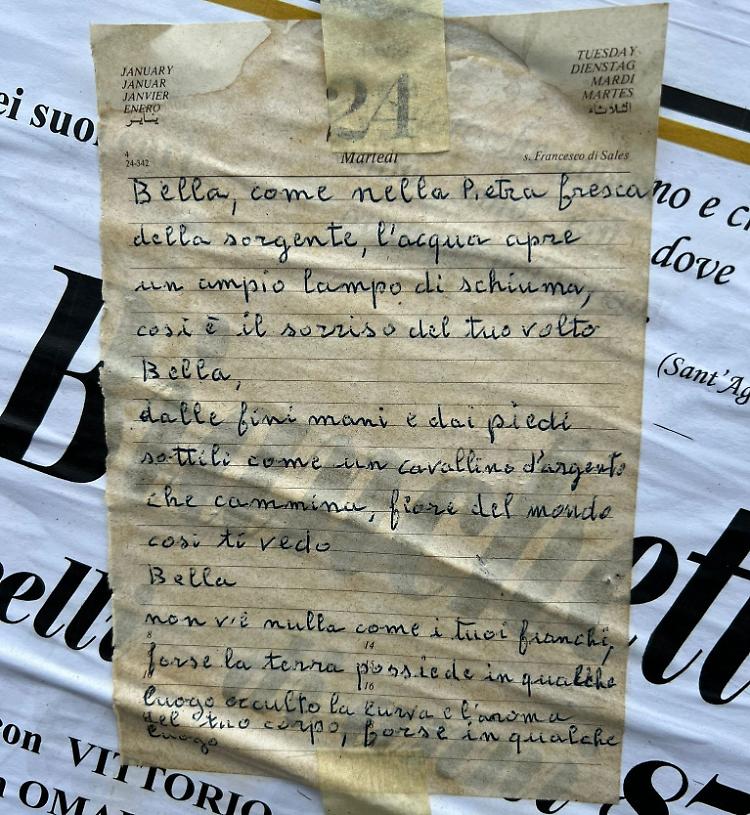 ei suo
JANUARY
JANUAR
JANVIER
ENERO
يناير
24
TUESDAY
DIENSTAG
MARDI
MARTES
الثلاثاء
4
24-342
Martedì
s. Francesco di Sales
Bella, come nella Pietra fresca
della sorgente, l'acqua apre
un ampio lampo di schiuma,
così è il sorriso del tuo volto
Bella,
dalle fini mani e dai piedi
sottili come un cavallino d'argento
che cammina, fiore del mondo
così ti vedo
Bella
non v'è nulla come i tuoi fianchi,
8
14
forse la terra possiede in qualche
16
luogo occulto la curva e l'aroma
del tuo corpo, forse in qualche
luogo
no e
dove
(Sant'Ag
B
ell
ett
con VITTORIO
OMA
87